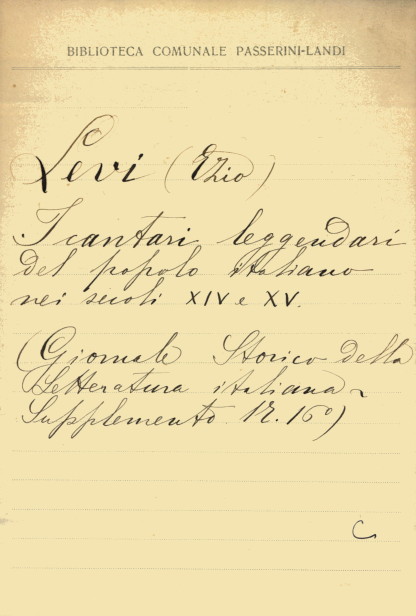 BIBLIOTECA COMUNALE PASSERINI-LANDI
Levi (Ezio)
I cantari leggendari
del popolo italiano
nei secoli XIV e XV.
(Giornale Storico della
Letteratura italiana -
Supplemento n. 16°)
C